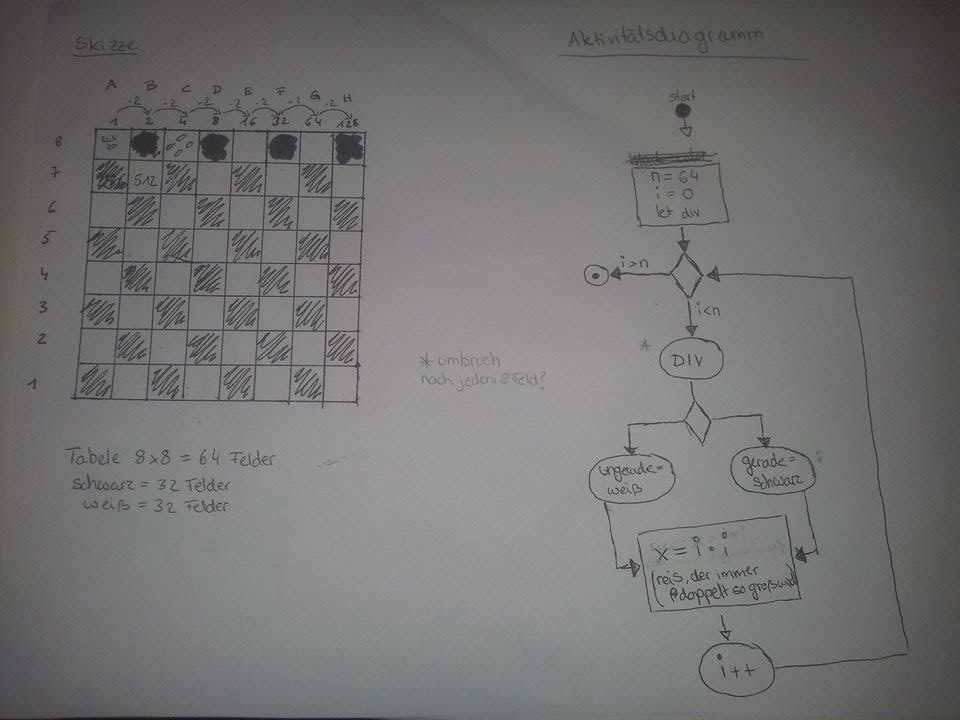 Skizze
A B C D E F G H
·2 ·2 ·2 ·2 ·2 ·2 ·2
1 2 4 8 16 32 64 128
8
7
512
6
5
4
3
2
1
Tabele 8x8 = 64 Felder
schwarz = 32 Felder
weiß = 32 Felder
* umbruch
nach jedem 8 Feld?
Aktivitätsdiagramm
start
n = 64
i = 0
let div
i>n
i<n
*
DIV
ungerade =
weiß
gerade =
schwarz
x = i · i
(reis, der immer
doppelt so groß wird
i++